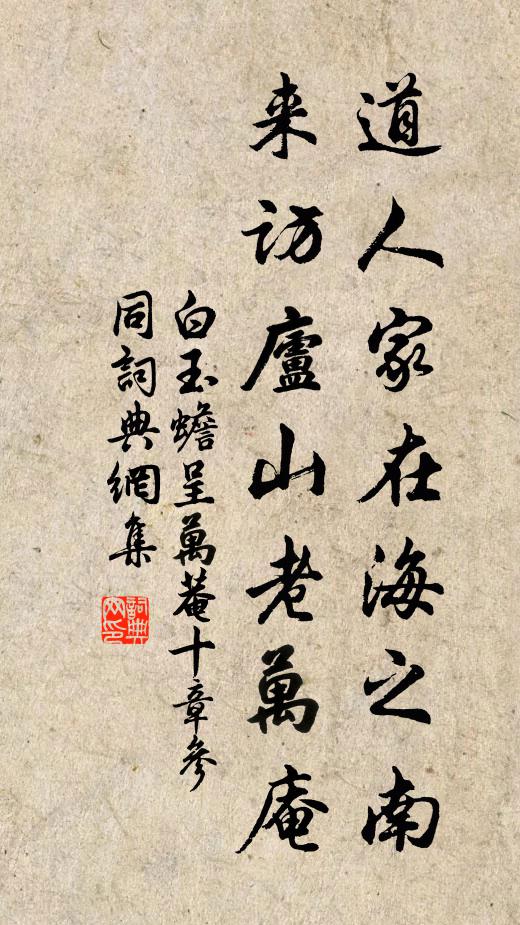 道人家在海之南
来访廬山老萬庵
白玉蟾呈萬菴十章參
同詞典網集
詞典网印